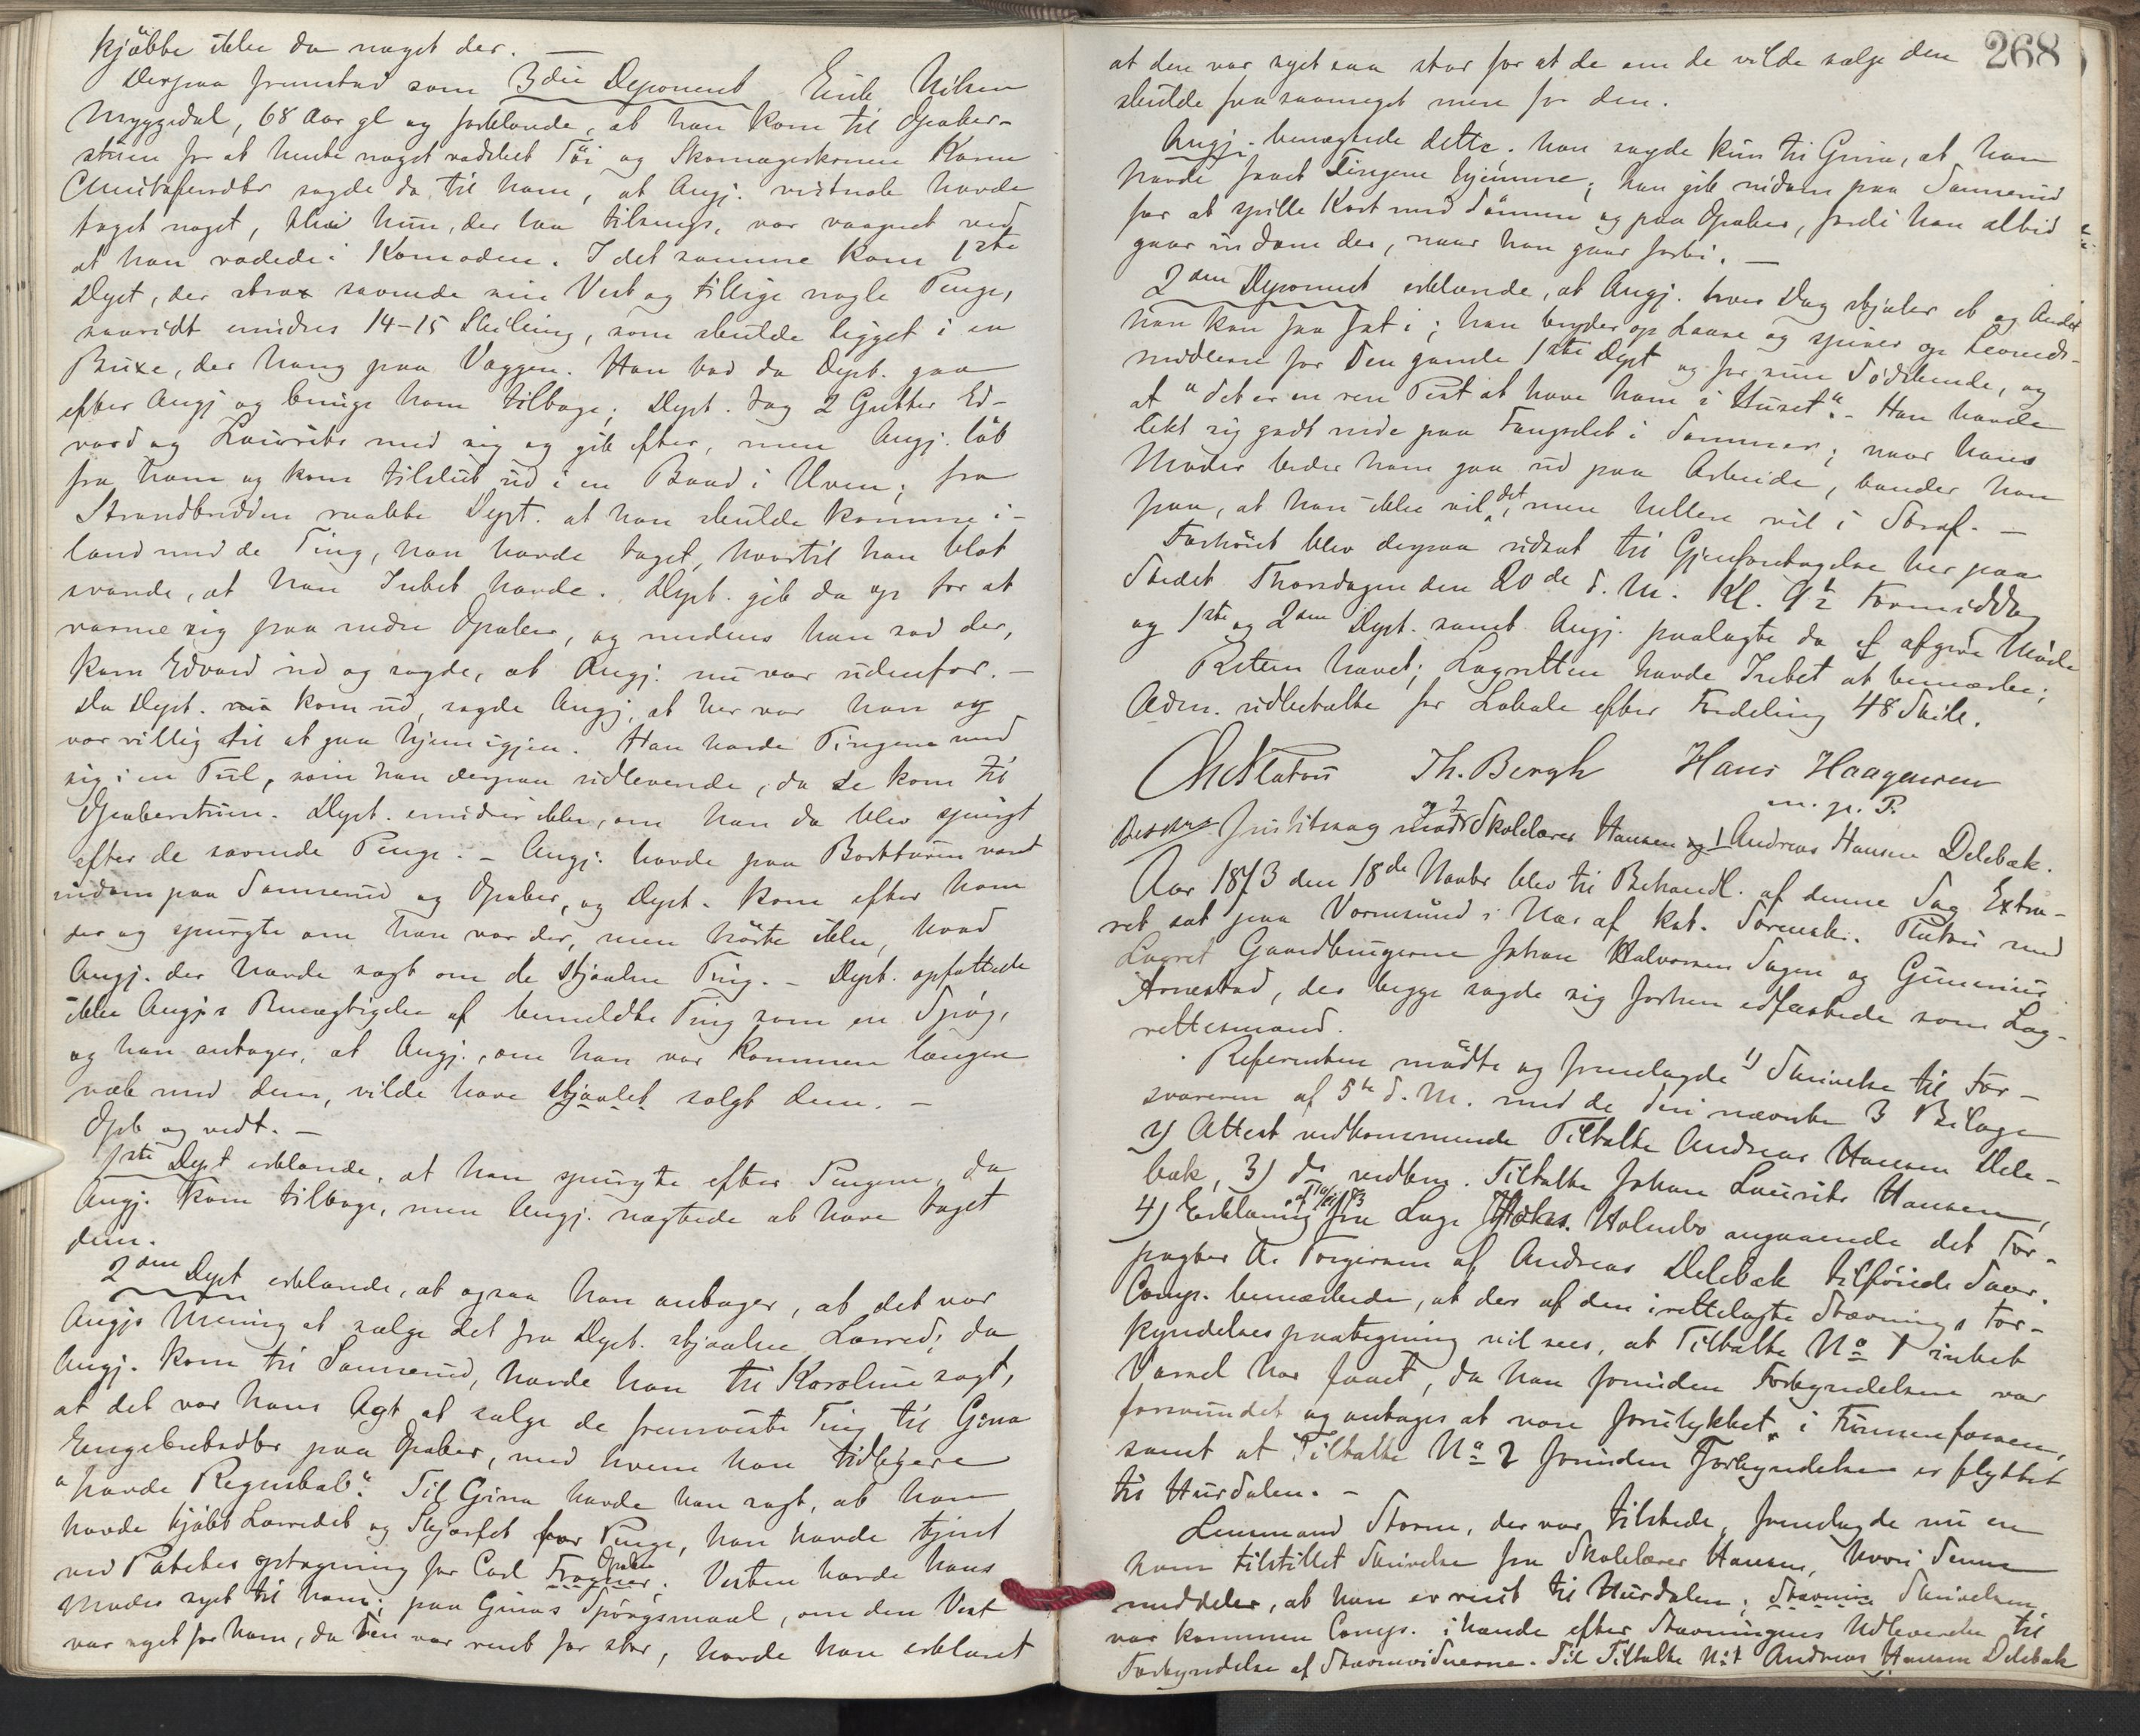 kjöbte ikke da noget der. —
Derpaa fremstod som 3die Deponent Erik Nilsen
Myggedal, 68 Aar gl og forklarede, at han kom til Opaker-
stuen for at hente noget vadsket Töi og Skomagerkonen Karen
Christofersdtr sagde da til ham, at Angj. vistnok havde
taget noget, thi hun, der laa tilsengs, var vaagnet ved
at han rodede i Komoden. I det samme kom 1ste
Dept, der strax savnede sin Vest og tillige nogle Penge,
saavidt erindres 14-15 Skilling, som skulde ligget i en
Buxe, der hang paa Væggen. Han bad da Dept. gaa
efter Angj og bringe ham tilbage; Dept. tog 2 Gutter Ed-
vard og Laurits med sig og gik efter, men Angj. löb
fra ham og kom tilslut ud i en Baad i Uven; fra
Strandbredden raabte Dept. at han skulde komme i-
land med de Ting, han havde taget, hvortil han blot
svarede, at han Intet havde. Dept. gik da op for at
varme sig paa nedre Opaker, og medens han sad der,
kom Edvard ind og sagde, at Angj: nu var udenfor. —
Da Dept. kom ud, sagde Angj, at her var han og
var villig til at gaa hjem igjen. Han havde Tingene med
sig i en Tul, som han derpaa udleverede, da de kom til
Opakerstuen. Dept. erindrer ikke, om han da blev spurgt
efter de savnede Penge. – Angj: havde paa Bortturen været
indom paa Sannerud og Opaker, og Dept. kom efter ham
der og spurgte om han var der, men hörte ikke, hvad
Angj. der havde sagt om de stjaalne Ting. – Dept. opfattede
ikke Angjs Bemægtigelse af bemeldte Ting som en Spög,
og han antager, at Angj., om han var kommen længere
væk med dem, vilde have stjaalet solgt dem. —
Opl og vedt. —
1ste Dept erklærede, at han spurgte efter Pengene, da
Angj. kom tilbage, men Angj. nægtede at have taget
dem.
2den Dept erklærede, at ogsaa han antager, at det var
Angjs Mening at sælge det fra Dept. stjaalne Lærred; da
Angj. kom til Sannerud, havde han til Karoline sagt,
at det var hans Agt at sælge de fremviste Ting til Gina
Engebretsdtr paa Opaker, med hvem han tidligere
"havde Regnskab". Til Gina havde han sagt, at han
havde kjöbt Lærredet og Skjærfet for Penge, han havde tjent
ved Potetesoptagning for Carl Fragner Opaker. Vesten havde hans
Moder syet til ham; paa Ginas Spörgsmaal, om den Vest
var syet for ham, da den var rent for stor, havde han erklæret
268
at den var syet saa stor for at de om de vilde sælge den
skulde faa saameget mere for den.
Angj. benægtede dette. han sagde kun til Gina, at han
havde faaet Tingene hjemme; han gik indom paa Sannerud
for at spille Kort med Sönnen og paa Opaker, fordi han altid
gaar indom der, naar han gaar forbi. —
2den Deponent erklærede, at Angj. hver Dag stjæler et og Andet
han kan faa fat i; han bryder op Laase og spiser op Levneds-
midlerne for den gamle 1ste Dept og for sine Södskende, og
at "det er en ren Pest at have ham i Huset". – Han havde
likt sig godt nede paa Fængslet i Sommer; naar hans
Moder beder ham gaa ud paa Arbeide, bander han
paa, at han ikke vil det, men hellere vil i Straf. —
Forhöret blev derpaa udsat til Gjenforetagelse her paa
Stedet Thorsdagen den 20de d. M. Kl. 9½ Formiddag
og 1ste og 2den Dept. samt Angj. paalagte da at afgive Möde
Retten hævet; Lagretten havde Intet at bemærke;
Adm. udbetalte for Lokale efter Fordeling 48 Skill.
Chr Platou Th. Bergh Hans Haagensen
m. p. P.
Justitssag mod Skolelærer Hansen og Andreas Hansen Delebæk.
Aar 1873 den 18de Novbr blev til Behandl. af denne Sag Extra-
ret sat paa Vormsund i Næs af kst. Sorenskr. Platou med
Lagret Gaardbrugerne Johan Halvorsen Sagen og Gunerius
Arnestad, der begge sagde sig forhen edfæstede som Lag-
rettesmænd.
Referenten mödte og fremlagde 1) Skrivelse til For-
svareren af 5te d. M. med de deri nævnte 3 Bilage
2) Attest vedkommende Tiltalte Andreas Hansen Dele-
bæk, 3) do vedkom. Tiltalte Johan Laurits Hansen,
4) Erklæring fra Læge Holmbo angaaende det For-
pagter A. Torgersen af Andreas Delebæk tilföiede Saar.
Comp. bemærkede, at der af den irettelagte Stævnings For-
kyndelsespaategning vil sees, at Tiltalte No 1 intet
Varsel har faaet, da han forinden Forkyndelsen var
forsvundet og antages at være forulykket i Funnenfossen,
samt at Tiltalte No 2 forinden Forkyndelsen er flyttet
til Hurdalen. –
Lensmand Storm, der var tilstede, fremlagde nu en
ham tilstillet Skrivelse fra Skolelærer Hansen, hvori denne
meddeler, at han er reist til Hurdalen; Stævnin Skrivelsen
var kommen Comp. ihænde efter Stævningens Udleverelse til
Forkyndelse af Stævnevidnerne. Til Tiltalte No 1 Andreas Hansen Delebæk